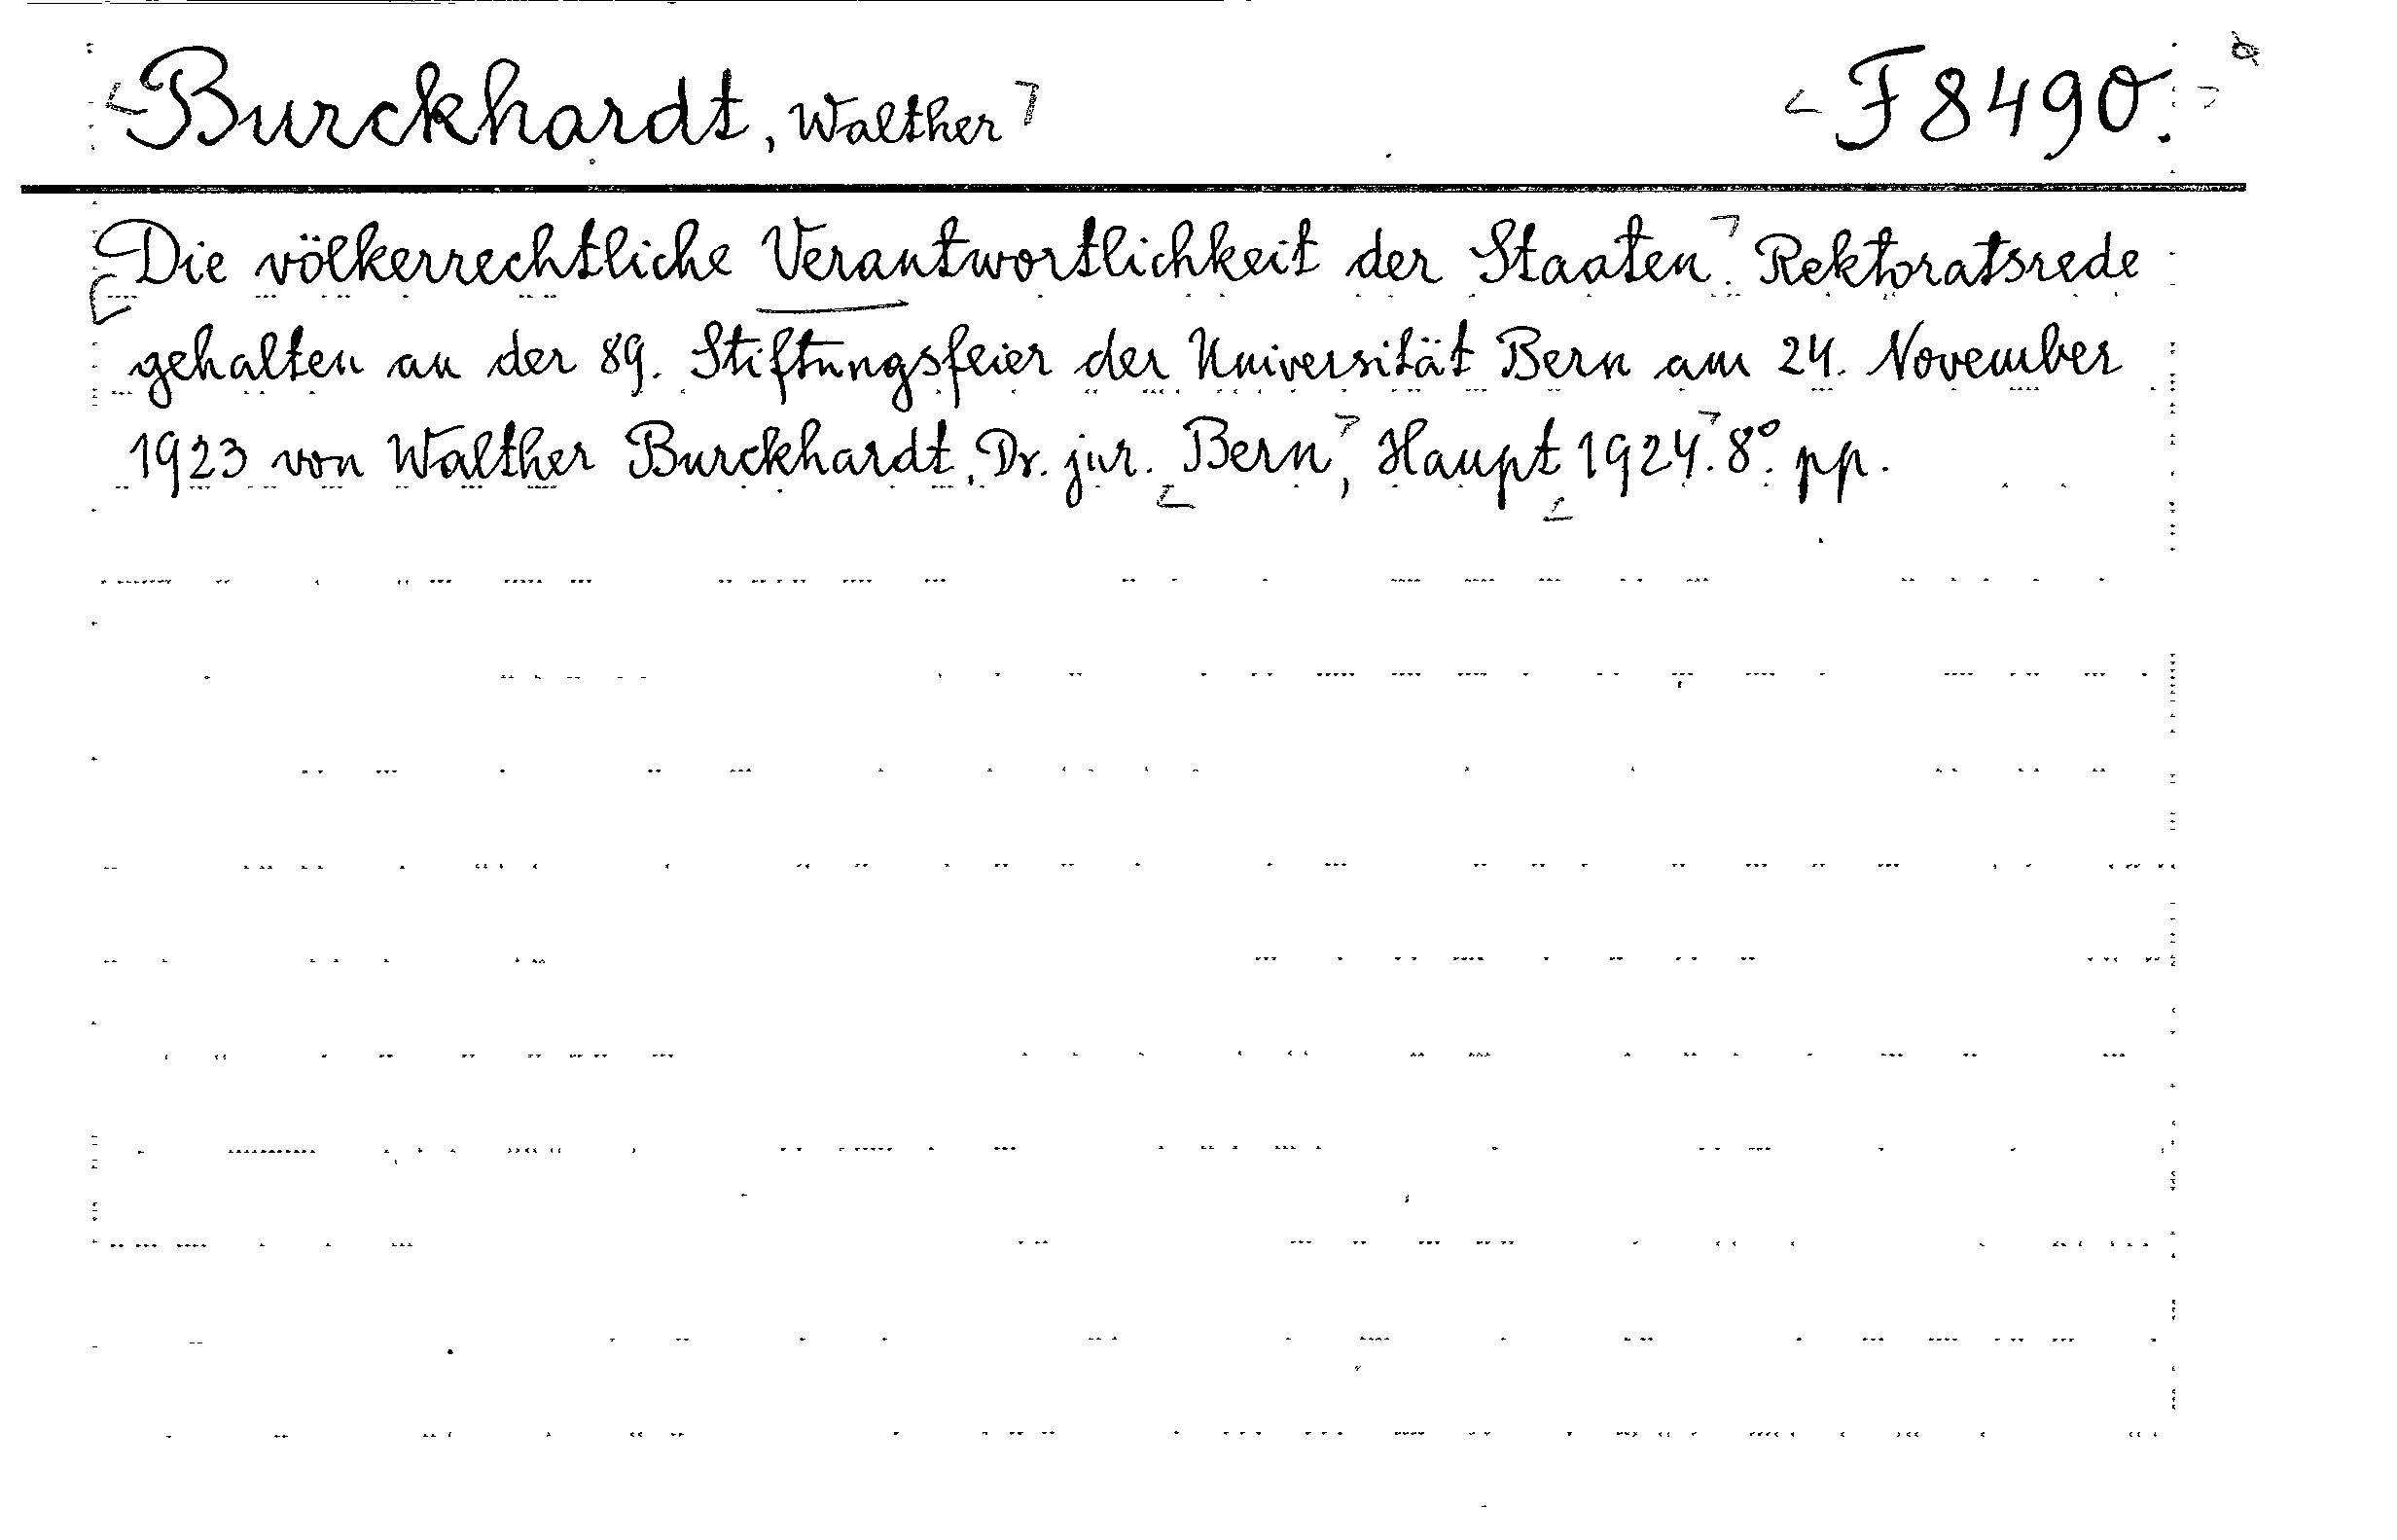 Burckhardt, Walther F 8490.
Die völkerrechtliche Verantwortlichkeit der Staaten. Rektoratsrede
gehalten an der 89. Stiftungsfeier der Universität Bern am 24. November
1923 von Walther Burckhardt, Dr. jur. Bern, Haupt 1924. 8°. pp.